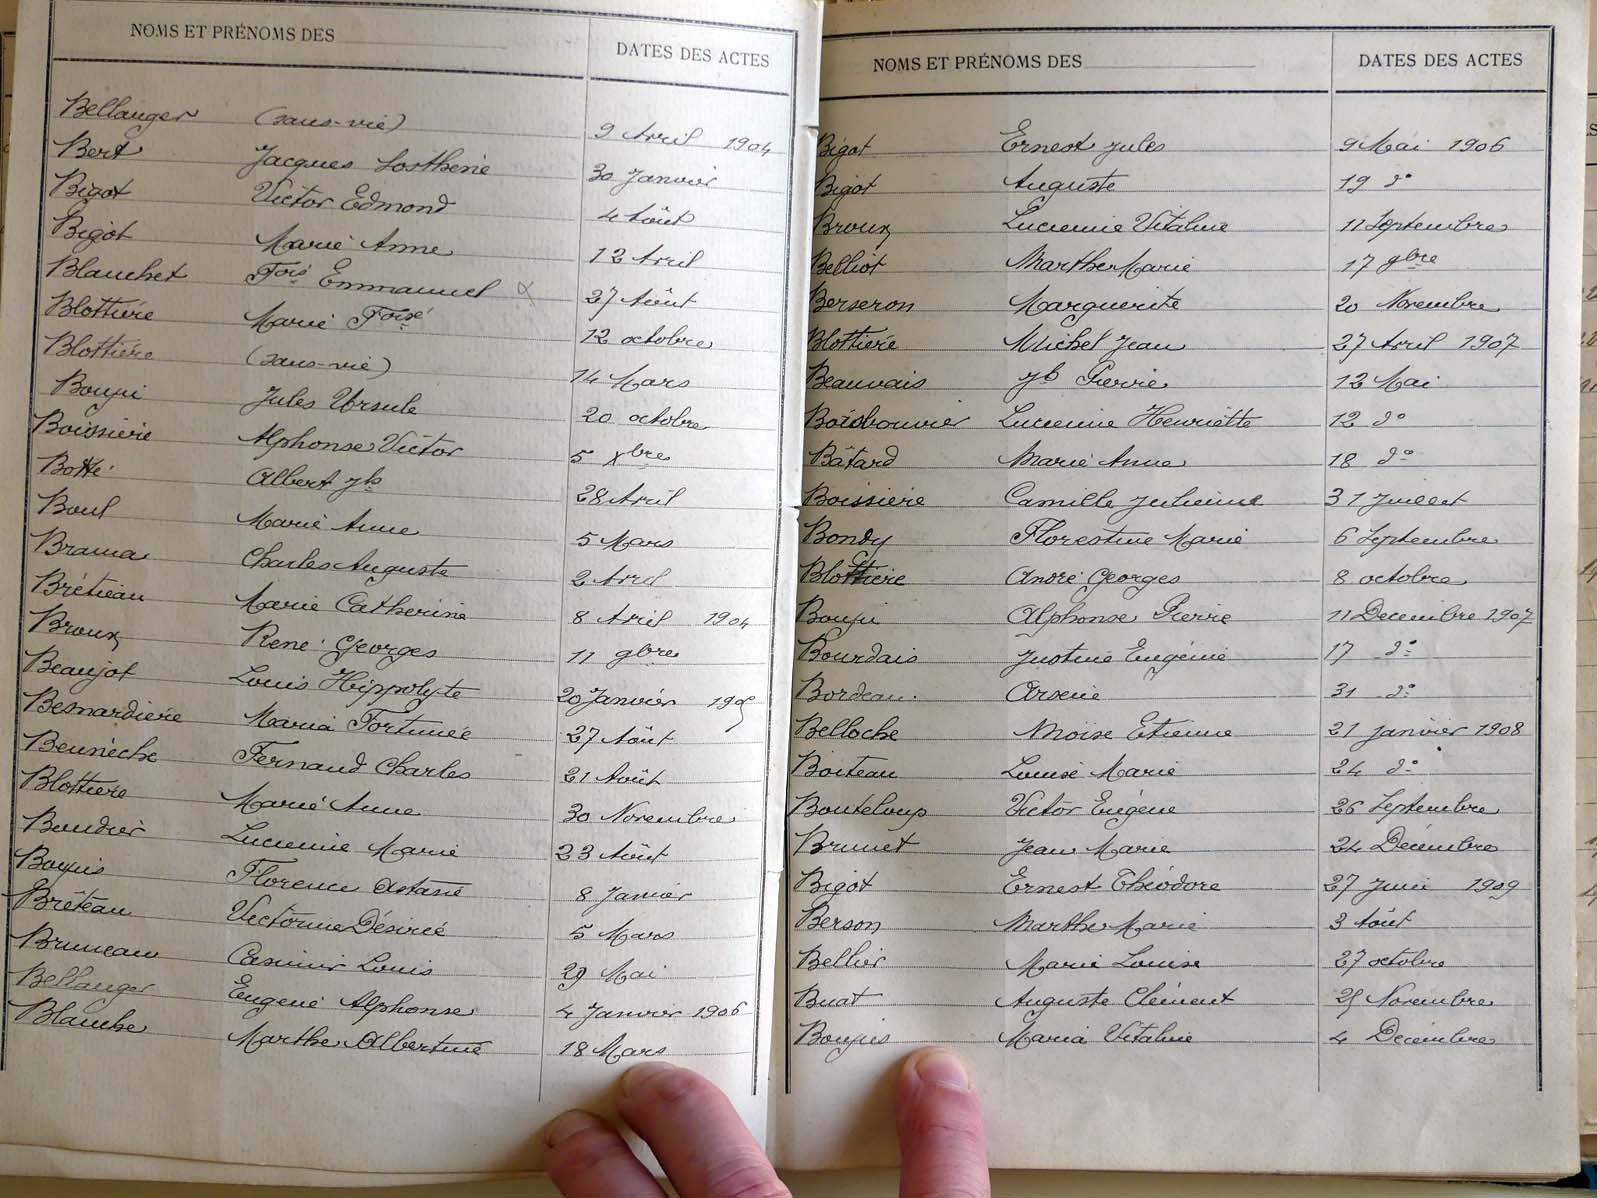 NOMS ET PRÉNOMS DES DATES DES ACTES
Bellanger (sans-vie) 9 Avril 1904
Bert Jacques Losthène 30 Janvier
Bigot Victor Edmond 4 Août
Bigot Marie Anne 12 Avril
Blanchet Fois Emmanuel 27 Août
Blottière Marie Foise 12 octobre
Blottière (sans-vie) 14 Mars
Boujù Jules Ursule 20 octobre
Boissière Alphonse Victor 5 Xbre
Botté Albert Jh 28 Avril
Boul Marie Anne 5 Mars
Brama Charles Auguste 2 Avril
Brétieau Marie Catherine 8 Avril 1904
Broux René Georges 11 9bre
Beaujot Louis Hippolyte 20 Janvier 1905
Besnardière Maria Fortunée 27 Août
Beunèche Fernand Charles 21 Août
Blottière Marie Anne 30 Novembre
Boudier Lucienne Marie 23 Août
Florence 8 Janvier
Brêteau Victorine Désirée 5 Mars
Bruneau Casimir Louis 29 Mai
Bellanger Eugène Alphonse 4 Janvier 1906
Blanche Marthe Albertine 18 Mars
NOMS ET PRÉNOMS DES DATES DES ACTES
Bigot Ernest Jules 9 Mai 1906
Bigot Auguste 19 do
Broux Lucienne Vitaline 11 Septembre
Belliot Marthe Marie 17 9bre
Berseron Marguerite 20 Novembre
Blottière Michel Jean 27 Avril 1907
Beauvais Jh Pierre 12 Mai
Boisbouvier Lucienne Henriette 12 do
Bâtard Marie Anne 18 do
Boissière Camille Julienne 31 Juillet
Bondy Florestine Marie 6 Septembre
Blottière André Georges 8 octobre
Boujù Alphonse Pierre 11 Décembre 1907
Bourdais Justine Eugénie 17 do
Bordeau Arsène 31 do
Belloche Moïse Etienne 21 Janvier 1908
Boiteau Louise Marie 24 do
Bouteloup Victor Eugène 26 Septembre
Brunet Jean Marie 24 Décembre
Bigot Ernest Théodore 27 Juin 1909
Berson Marthe Marie 3 Août
Bellier Marie Louise 27 octobre
Buat Auguste Clément 25 Novembre
Maria Vitaline 4 Décembre